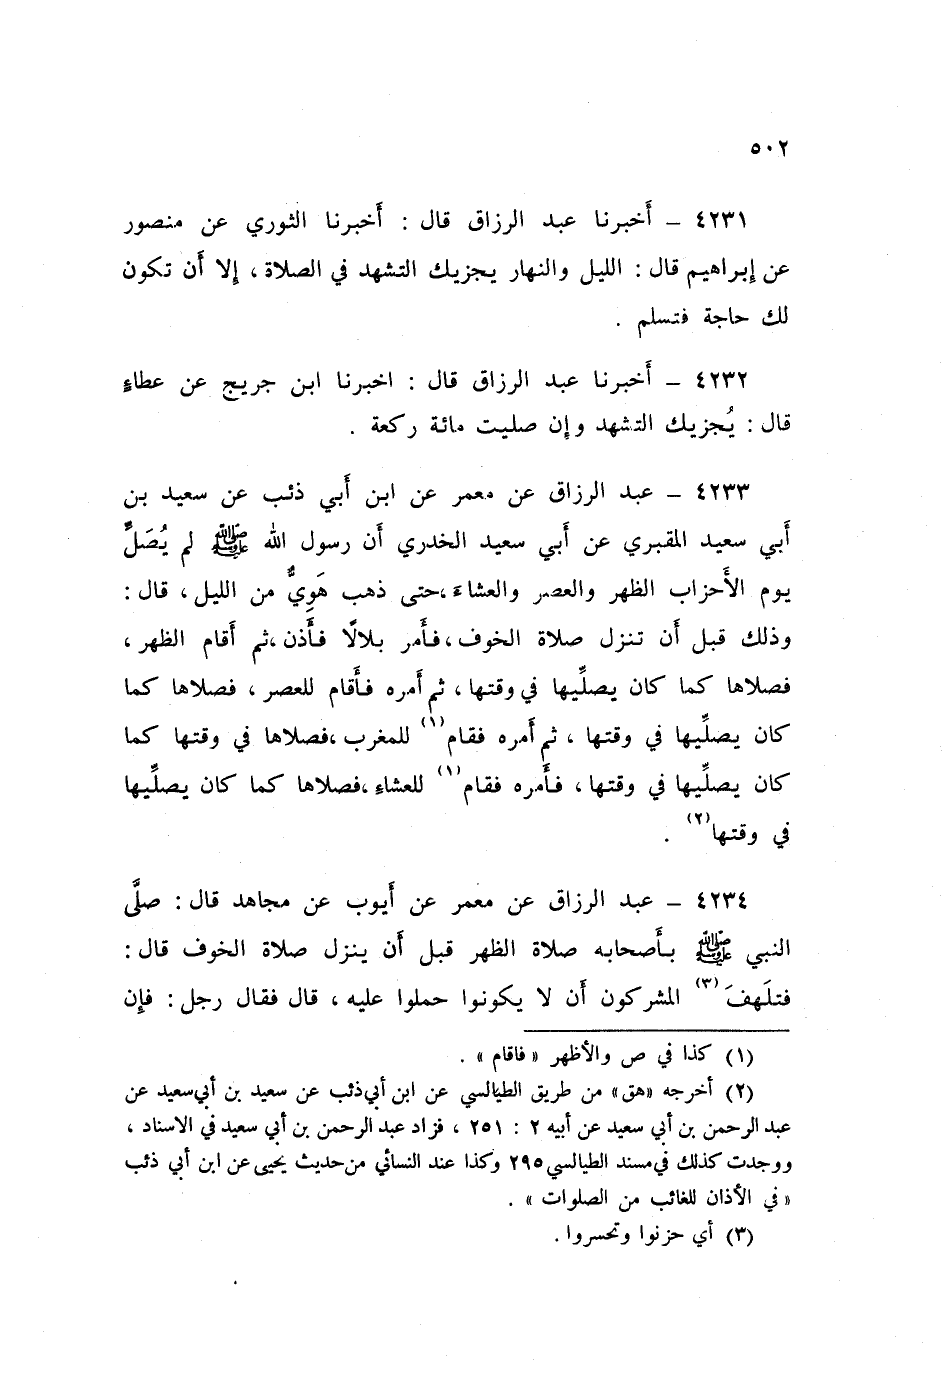 ٥٠٢
٤٢٣١ – أَخبرنا عبد الرزاق قال : أَخبرنا الثوري عن منصور
عن إبراهيم قال : الليل والنهار يجزيك التشهد في الصلاة ، إلا أَن تكون
لك حاجة فتسلم .
٤٢٣٢ – أَخبرنا عبد الرزاق قال : اخبرنا ابن جريج عن عطاءٍ
قال : يُجزيك التشهد وإن صليت مائة ركعة .
٤٢٣٣ – عبد الرزاق عن معمر عن ابن أَبي ذئب عن سعيد بن
أَبي سعيد المقبري عن أَبي سعيد الخدري أَن رسول الله ﷺ لم يُصَلِّ
يوم الأَحزاب الظهر والعصر والعشاءَ ،حتى ذهب هَوِيٌّ من الليل ، قال :
وذلك قبل أَن تنزل صلاة الخوف ،فأَمر بلالًا فأَذن ،ثم أَقام الظهر ،
فصلاها كما كان يصلِّيها في وقتها ، ثم أَمره فأَقام للعصر ، فصلاها كما
كان يصلِّيها في وقتها ، ثم أَمره فقام(١) للمغرب ،فصلاها في وقتها كما
كان يصلِّيها في وقتها ، فأَمره فقام(١) للعشاءِ ،فصلاها كما كان يصلِّيها
في وقتها(٢) .
٤٢٣٤ – عبد الرزاق عن معمر عن أَيوب عن مجاهد قال : صلَّى
النبي ﷺ بأَصحابه صلاة الظهر قبل أَن ينزل صلاة الخوف قال :
فتلَهفَ(٣) المشركون أَن لا يكونوا حملوا عليه ، قال فقال رجل : فإن
(١) كذا في ص والأظهر « فاقام » .
(٢) أخرجه «هق» من طريق الطيالسي عن ابن أبي ذئب عن سعيد بن أبي سعيد عن
عبد الرحمن بن أبي سعيد عن أبيه ٢ : ٢٥١ ، فزاد عبد الرحمن بن أبي سعيد في الاسناد ،
ووجدت كذلك في مسند الطيالسي ٢٩٥ وكذا عند النسائي من حديث يحيى عن ابن أبي ذئب
« في الأذان للغائب من الصلوات » .
(٣) أي حزنوا وتحسروا .